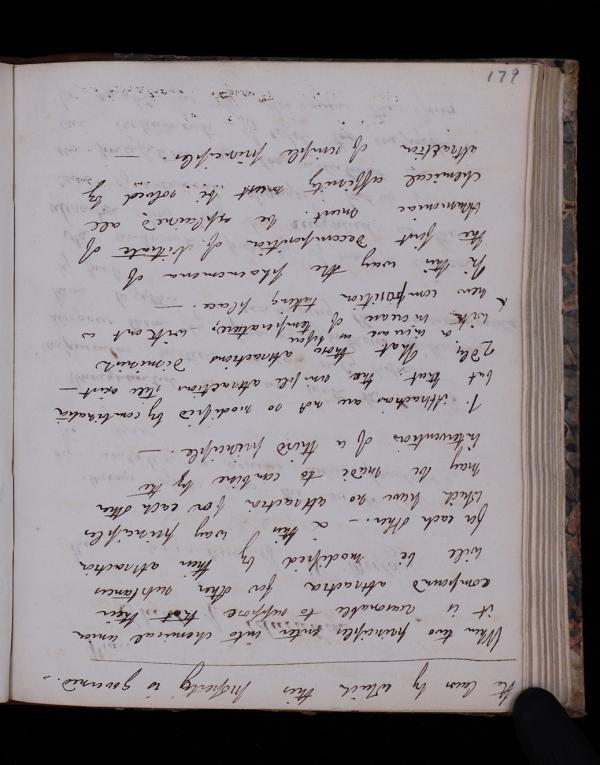 179
the Laws by which this property is governed. -
When two principles enter into chemical union
it is reasonable to suppose that their
compound attraction for other substances
will be modified by their attraction
for each other. - in this way principles
which have no attraction for each other
may be made to combine by the
intervention of a third principle. -
1. Attractions are not so modified by combination
but that the simple attractions still exist -
2dly that those attractions diminish
with increase of temperature, without a
new composition taking place. -
In this way the phaenomena of
the first decomposition of Nitrate of
Ammoniac must be explained, all
chemical affinity must be solved by
attraction of simple principles. -